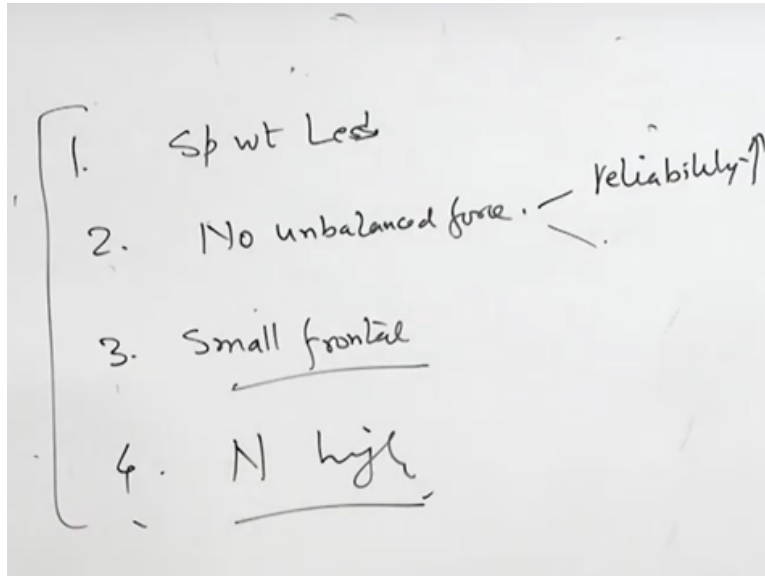 1. Sp wt Less
2. No unbalanced force. reliability ↑
3. Small frontal
4. N high